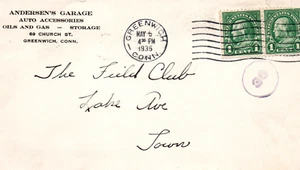 ANDERSEN'S GARAGE
AUTO ACCESSORIES
OILS AND GAS — STORAGE
69 CHURCH ST.
GREENWICH, CONN.
GREENWICH
MAY 6
4 30 PM
1935
CONN.
1 1
The Field Club
Lake Ave
Town